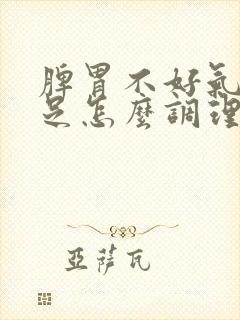 脾胃不好氣
足怎麼調理
亞薩瓦